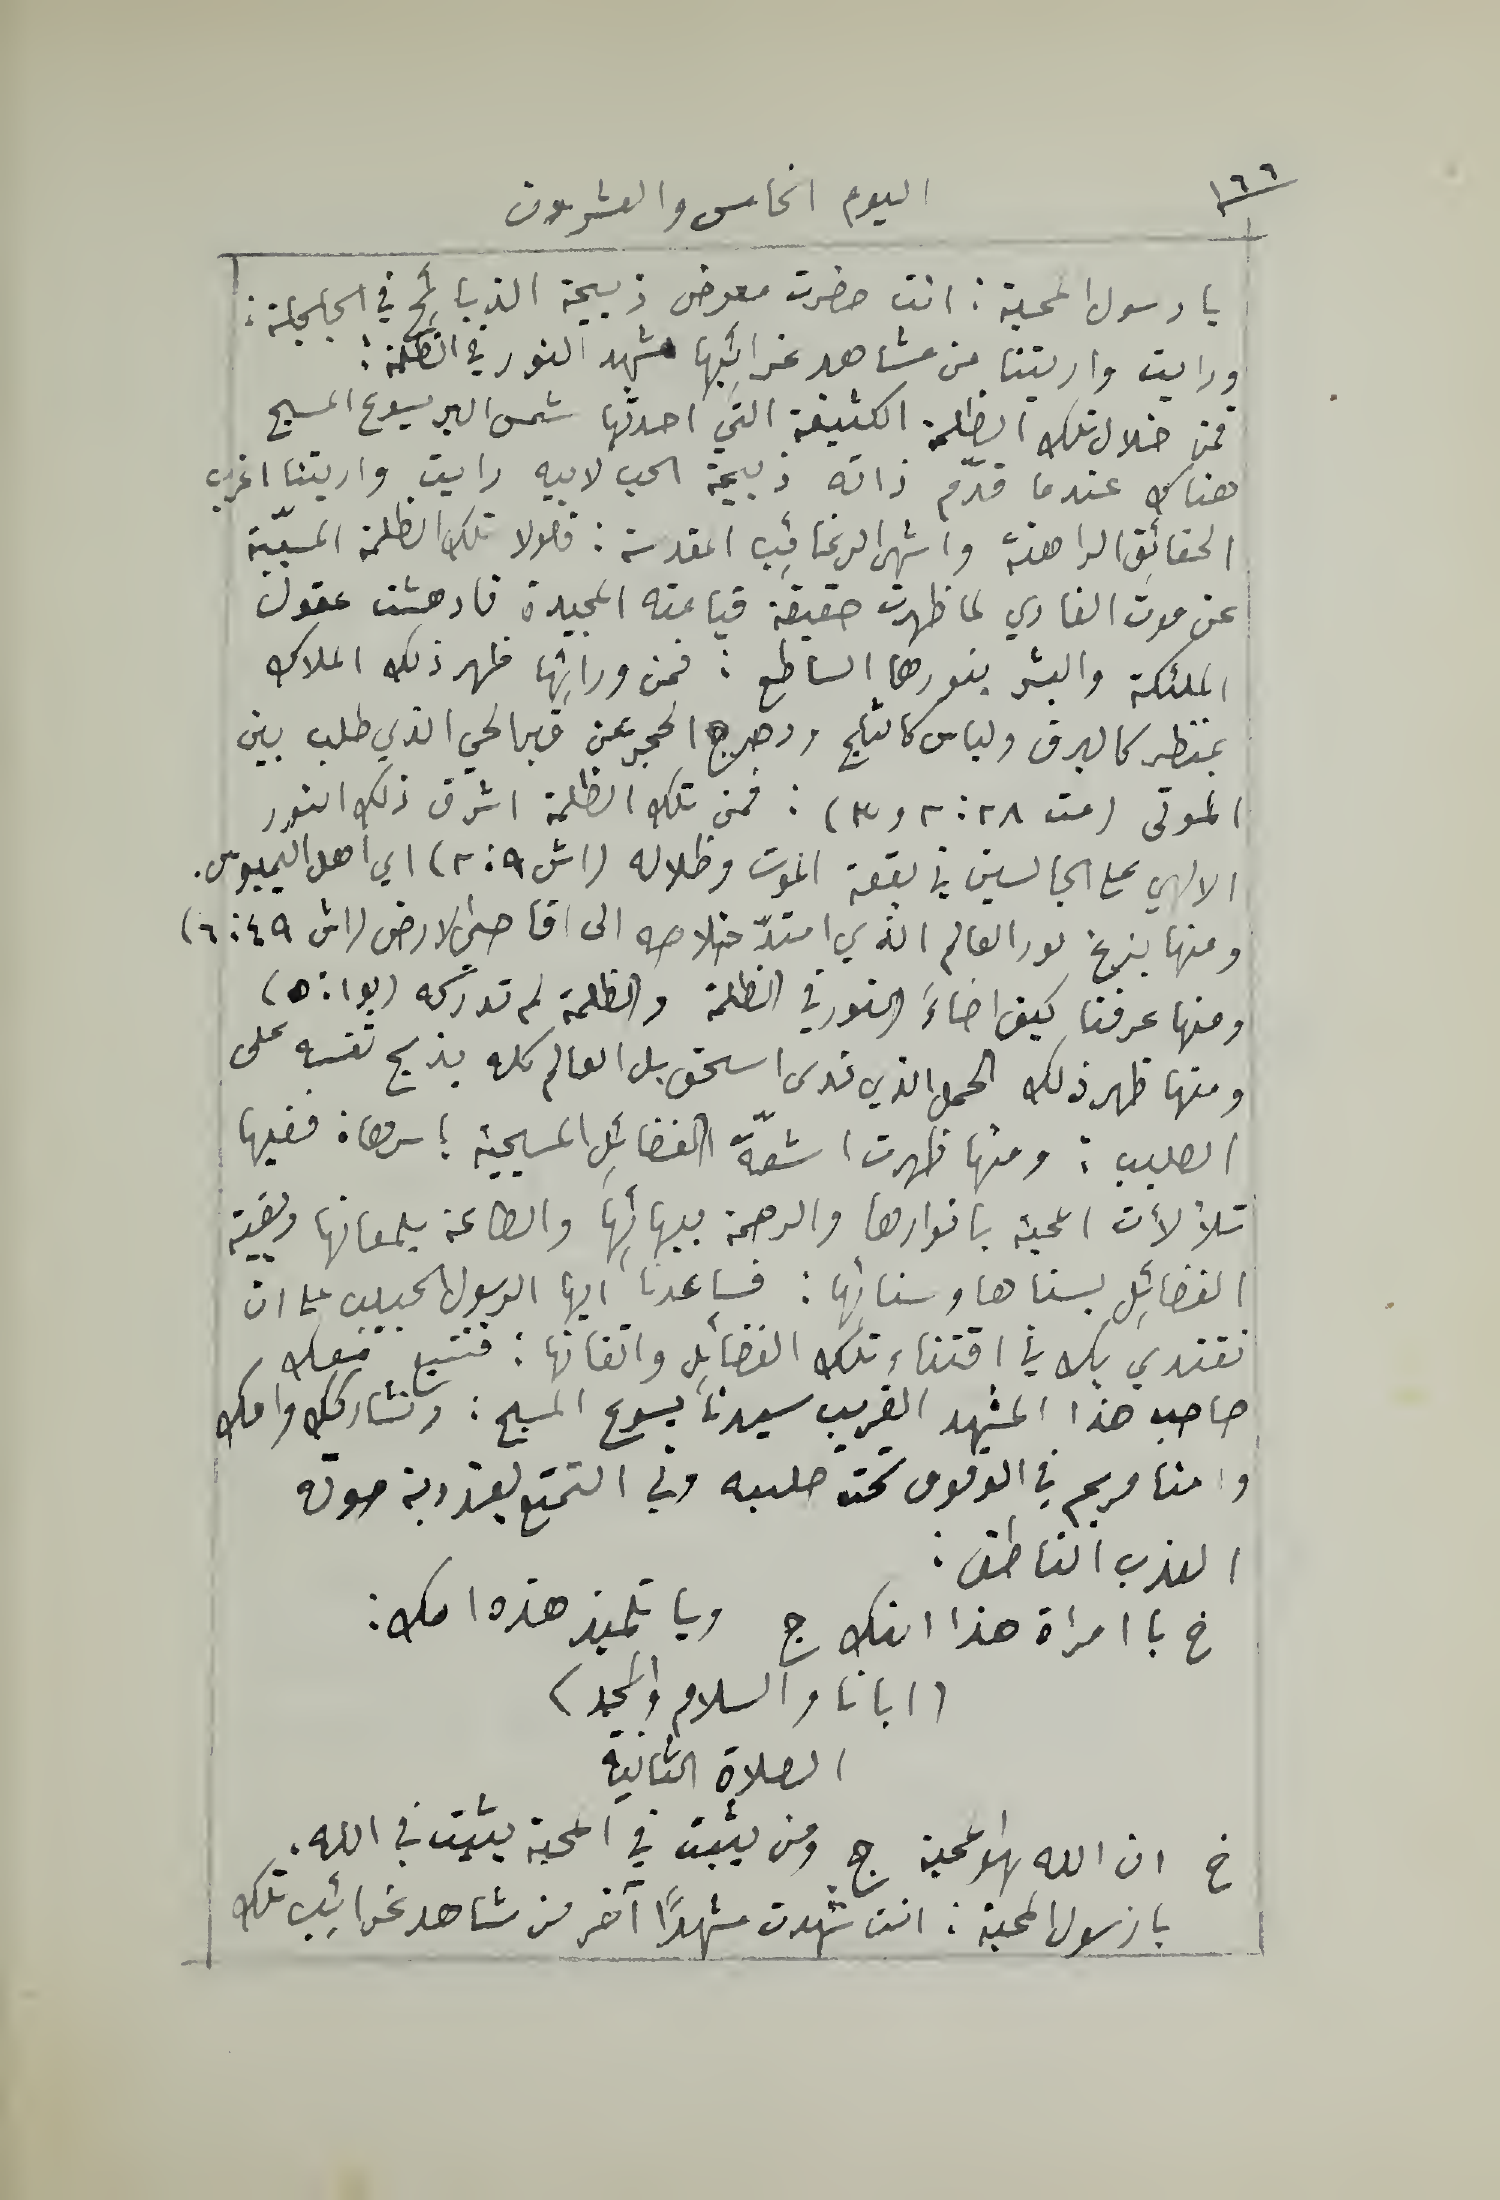 ١٦٦
اليوم الخامس والعشرون
يا رسول المحبة : انت حضرت معرض ذبيحة الذبائح في الجلجلة :
ورايت واريتنا من مشاهد غرائبها مشهد النور في الظلمة :
فمن خلال تلك الظلمة الكثيفة التي احدثها شمس البر يسوع المسيح
هناك عندما قدّم ذاته ذبيحة الحب لابيه رايت واريتنا اغرب
الحقائق الراهنة واشهى الرغائب المقدسة : فلولا تلك الظلمة المسبّبة
عن موت الفادي لما ظهرت حقيقة قيامته المجيدة فادهشت عقول
الملئكة والبشر بنورها الساطع : فمن ورائها ظهر ذلك الملاك
بمنظر كالبرق ولباس كالثلج ودحرج الحجر عن قبر الحي الذي طلب بين
الموتى (مت ٢٨ : ٢ و ٣) : فمن تلك الظلمة اشرق ذلك النور
الالهي على الجالسين في بقعة الموت وظلاله (اش ٩ : ٢) اي اهل اليمبوس .
ومنها بزغ نور العالم الذي امتدّ خلاصه الى اقاصي الارض (اش ٤٩ : ٦)
ومنها عرفنا كيف اضاءَ النور في الظلمة والظلمة لم تدركه (يو ١ : ٥)
ومنها ظهر ذلك الحمل الذي فدى اسحق بل العالم كله بذبح نفسه على
الصليب : ومنها ظهرت اشعّة الفضائل المسيحية باسرها : ففيها
تلألأت المحبة بانوارها والرحمة ببهائها والطاعة بلمعانها وبقية
الفضائل بسناها وسنائها : فساعدنا ايها الرسول الحبيب على ان
نقتدي بك في اقتناء تلك الفضائل واتقانها : فنتبع معك
صاحب هذا المشهد الغريب سيدنا يسوع المسيح : ونشاركك وامك
وامنا مريم في الوقوف تحت صليبه وفي التمتع بعذوبة صوته
العذب الناطق :
خ يا امراة هذا ابنك ج ويا تلميذ هذه امك :
(ابانا والسلام والمجد)
الصلاة الثانية
خ ان الله هو المحبة ج ومن يثبت في المحبة يثبت في الله .
يا رسول المحبة : انت شهدت مشهدًا آخر من مشاهد غرائب تلك